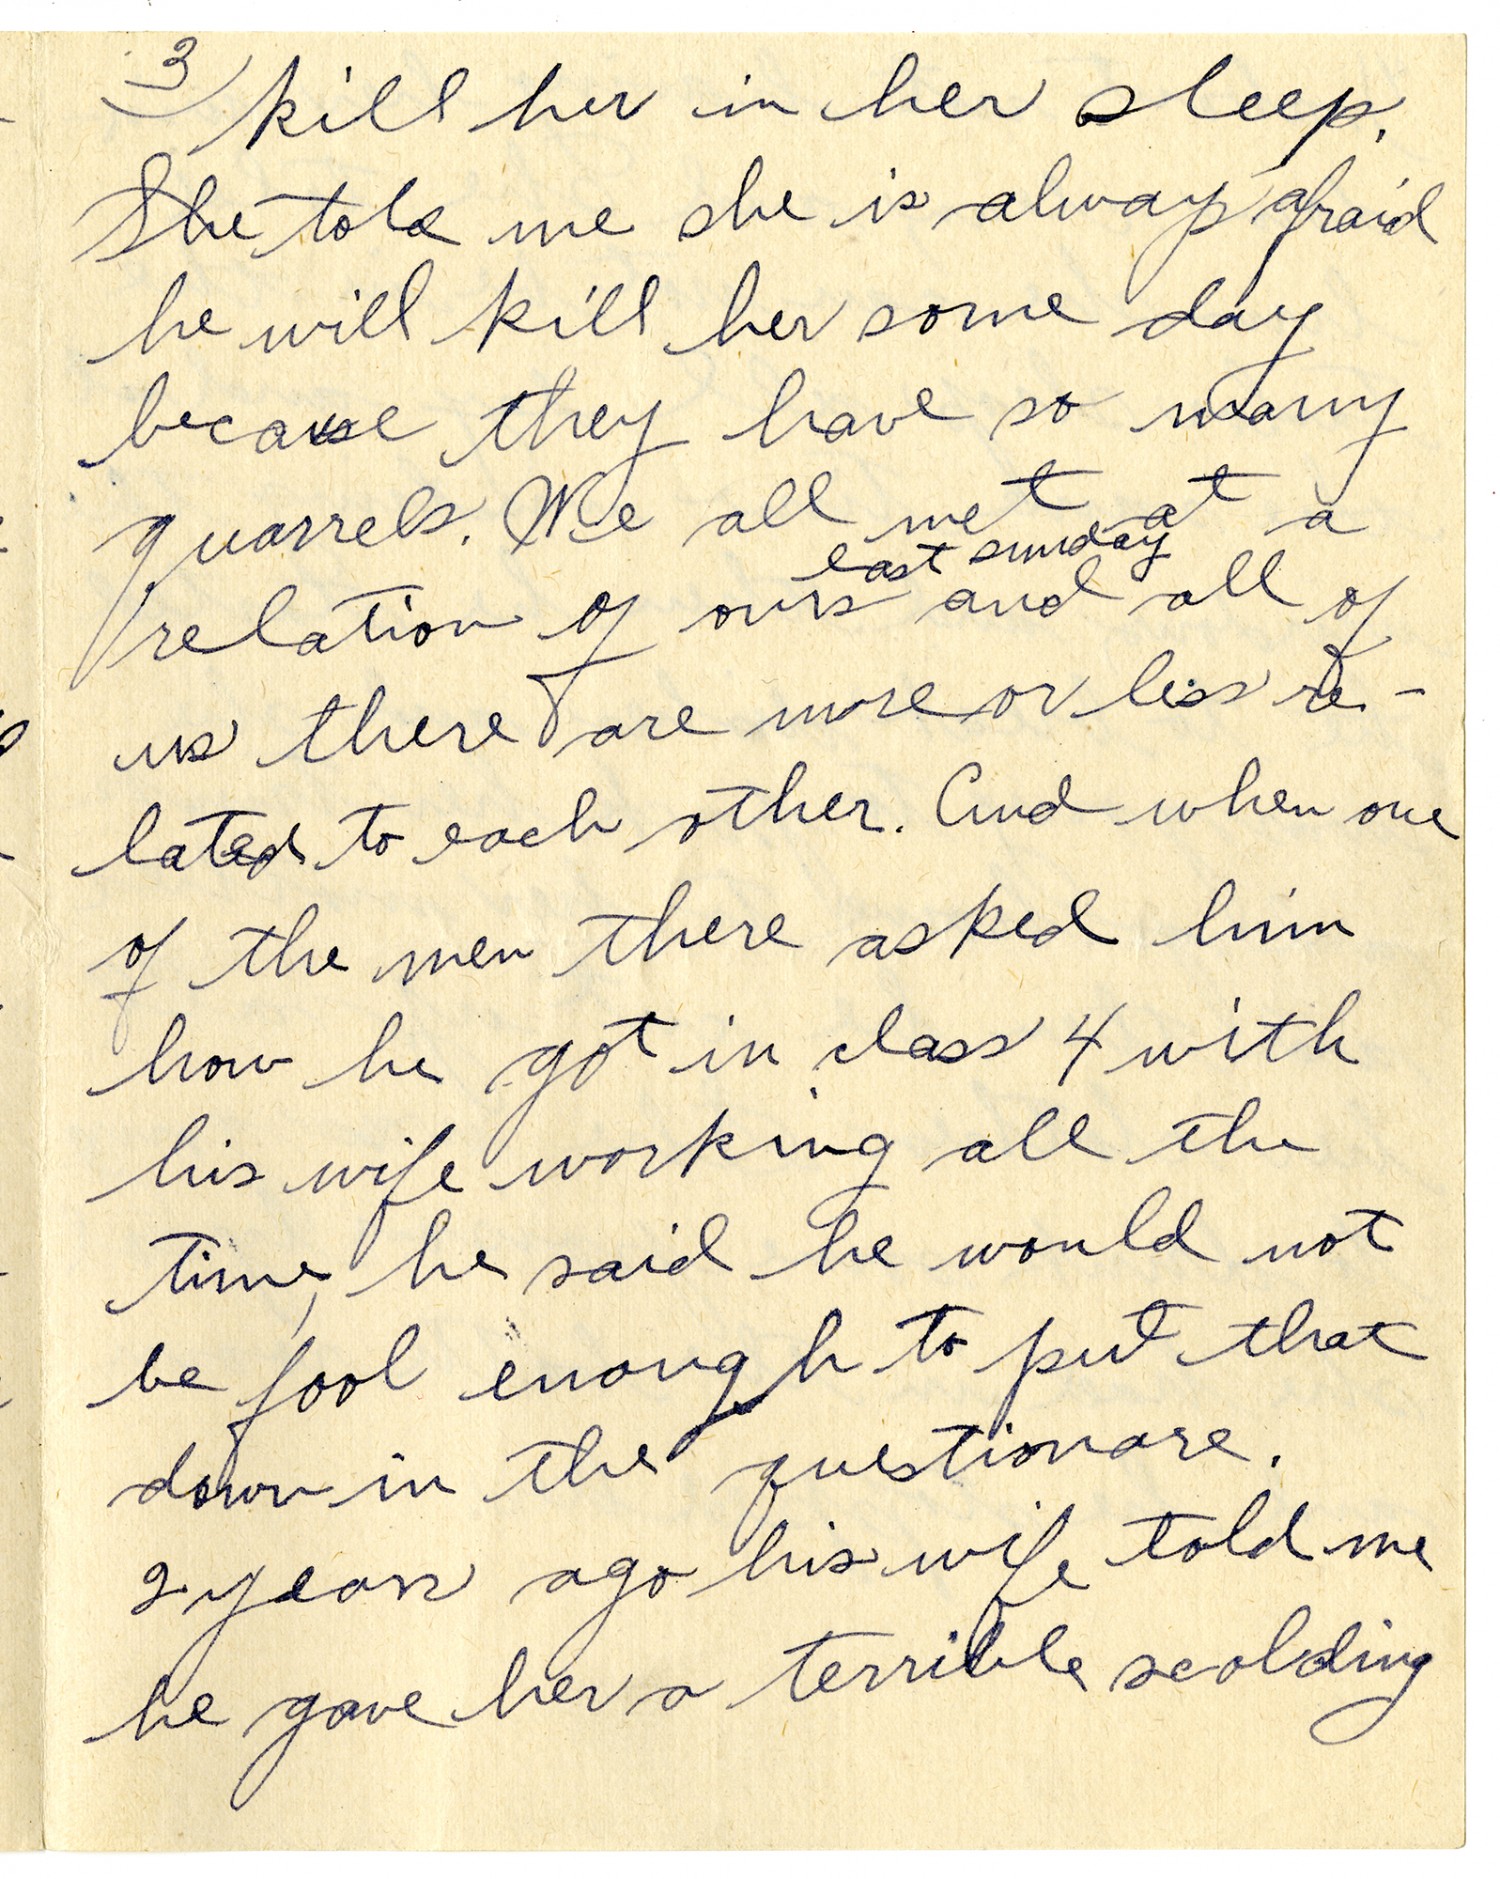 3
kill her in her sleep.
She told me she is always afraid
he will kill her some day
because they have so many
quarrels. We all met at a
last sunday
relation of ours and all of
us there are more or less re-
lated to each other. And when one
of the men there asked him
how he got in class 4 with
his wife working all the
time, he said he would not
be fool enough to put that
down in the questionare.
2 years ago his wife told me
he gave her a terrible scolding